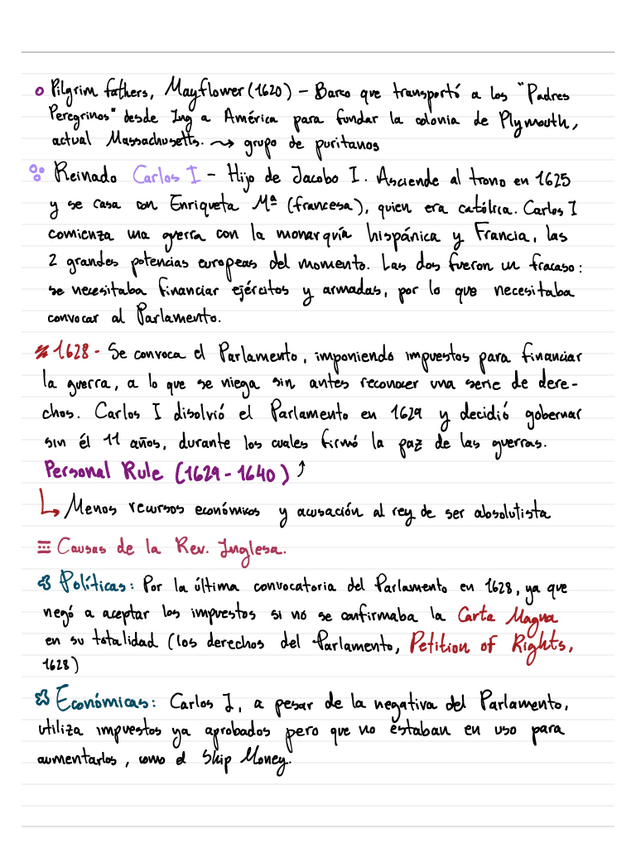 Pilgrim fathers, Mayflower (1620) - Barco que transportó a los "Padres
Peregrinos" desde Ing a América para fundar la colonia de Plymouth,
actual Massachusetts. ⇝ grupo de puritanos
Reinado Carlos I - Hijo de Jacobo I. Asciende al trono en 1625
y se casa con Enriqueta Mª (francesa), quien era católica. Carlos I
comienza una guerra con la monarquía hispánica y Francia, las
2 grandes potencias europeas del momento. Las dos fueron un fracaso:
se necesitaba financiar ejércitos y armadas, por lo que necesitaba
convocar al Parlamento.
1628 - Se convoca el Parlamento, imponiendo impuestos para financiar
la guerra, a lo que se niega sin antes reconocer una serie de dere-
chos. Carlos I disolvió el Parlamento en 1629 y decidió gobernar
sin él 11 años, durante los cuales firmó la paz de las guerras.
Personal Rule (1629 - 1640) ↑
↳ Menos recursos económicos y acusación al rey de ser absolutista
Causas de la Rev. Inglesa.
Políticas: Por la última convocatoria del Parlamento en 1628, ya que
negó a aceptar los impuestos si no se confirmaba la Carta Magna
en su totalidad (los derechos del Parlamento, Petition of Rights,
1628)
Económicas: Carlos I, a pesar de la negativa del Parlamento,
utiliza impuestos ya aprobados pero que no estaban en uso para
aumentarlos, como el Ship Money.